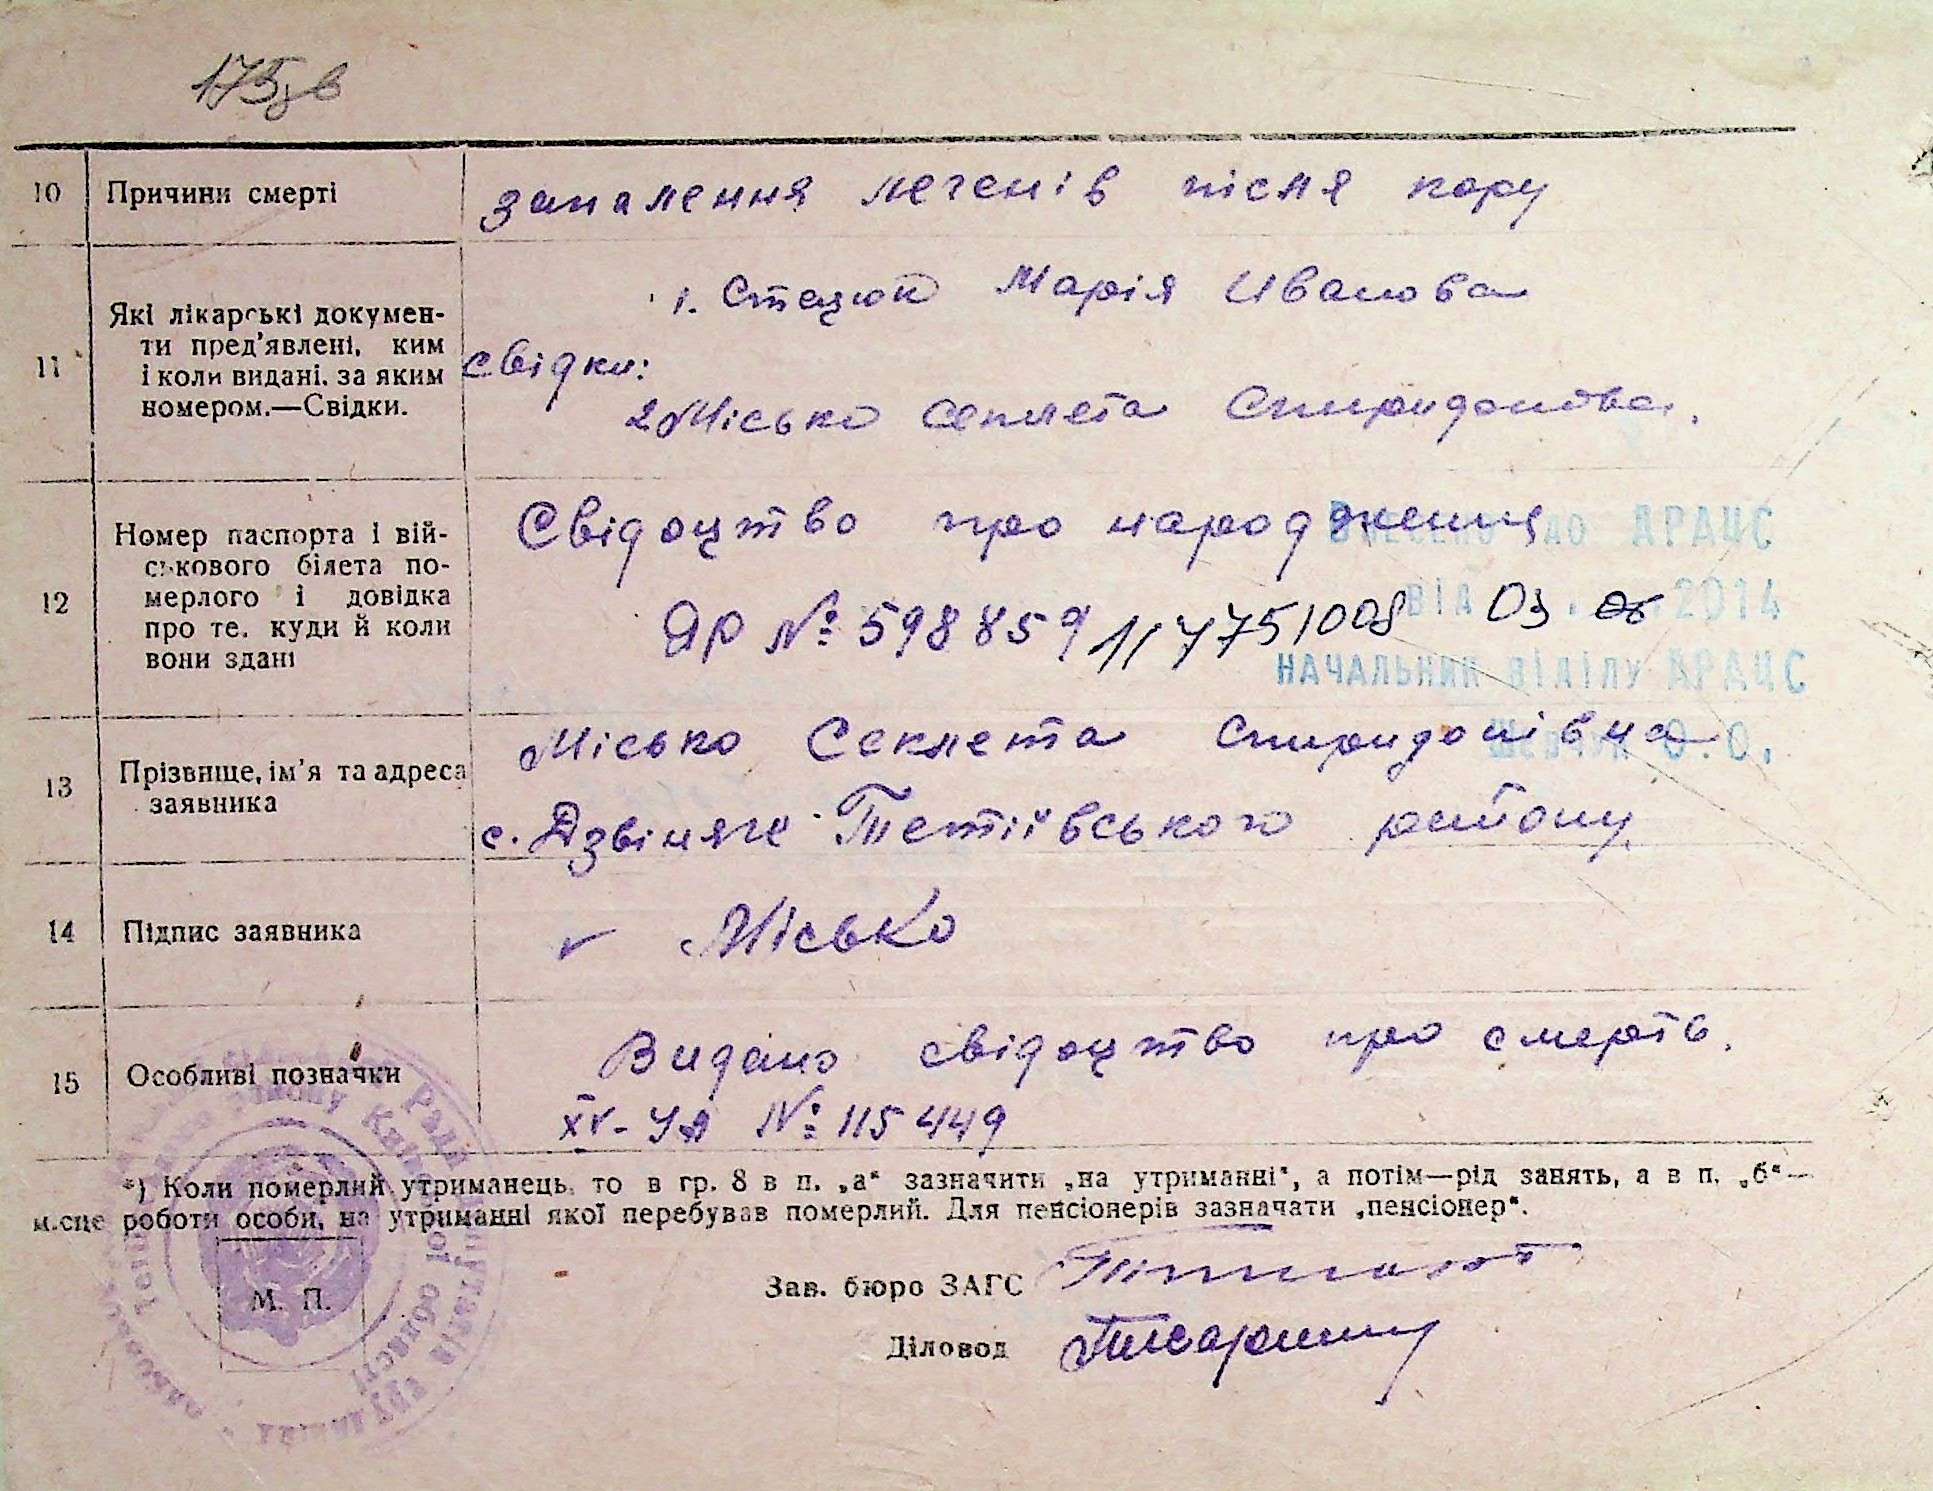 175зв
10 Причини смерті
запалення легенів після кору
11 Які лікарські докумен-
ти пред'явлені, ким
і коли видані, за яким
номером.—Свідки.
1. Стецюк Марія Иванова
свідки:
2 Місько Секлета Спиридонова.
12 Номер паспорта і вій-
ськового білета по-
мерлого і довідка
про те, куди й коли
вони здані
Свідоцтво про народження
ЯР № 598859 11775/008 03 06
ВНЕСЕНО ДО ДРАЦС
ВІД 2014
НАЧАЛЬНИК ВІДІЛУ ДРАЦС
О.О.
13 Прізвище, ім'я та адреса
заявника
Місько Секлета Спиридонівна
с. Дзвіняче Тетіївського району.
14 Підпис заявника
Місько
15 Особливі позначки
Видано свідоцтво про смерть.
XV-УЯ № 115449
*) Коли померлий утриманець, то в гр. 8 в п. „а“ зазначити „на утриманні“, а потім—рід занять, а в п. „б“—
місце роботи особи, на утриманні якої перебував померлий. Для пенсіонерів зазначати „пенсіонер“.
М. П.
Зав. бюро ЗАГС
Діловод